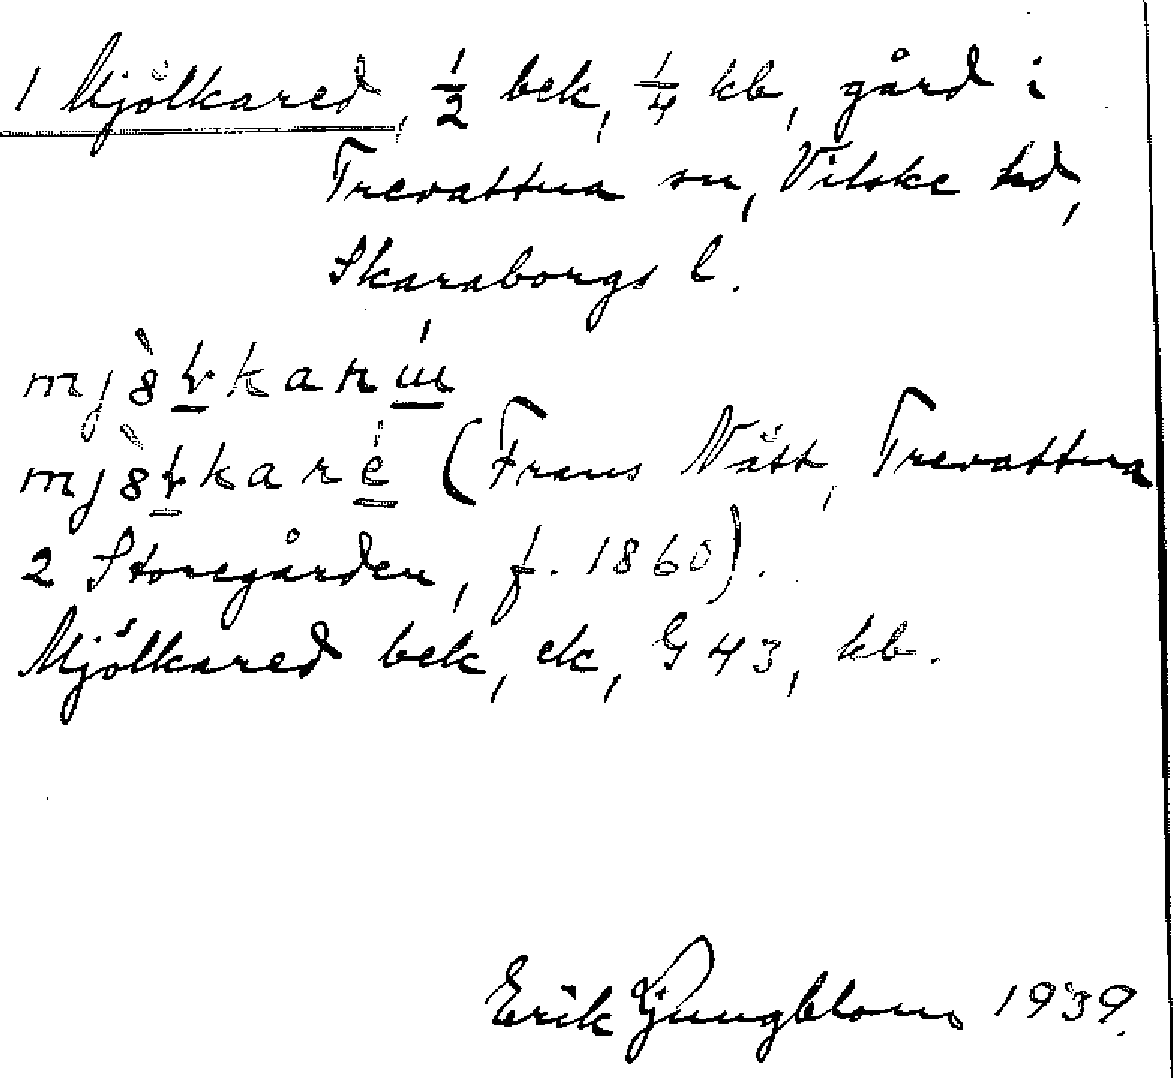 1 Mjölkared, 1/2 bek, 1/4 kb, gård i
Trevattna sn, Vilske hd,
Skaraborgs l.
(Frans Nätt, Trevattna
2 Storegården, f. 1860).
Mjölkared bek, ek, G 43, kb.
Erik Ljungblom 1939.